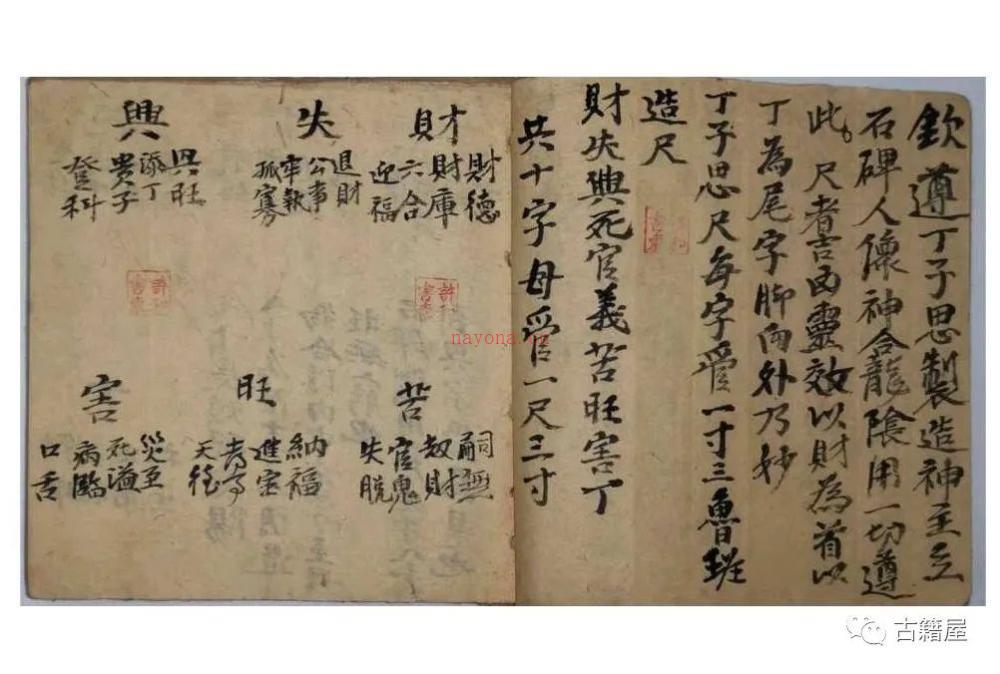 欽遵丁子思製造神主立
石碑人像神合龍陰用一切遵
此尺者言凶靈效以財為首以
丁為尾字脚向外乃妙
丁子思尺每字管一寸三魯班
造尺
財失興死官義苦旺害丁
共十字母管一尺三寸
財
財德
財庫
六合
迎福
失
退財
公事
牢執
孤寡
興
興旺
添丁
貴子
登科
苦
嗣無
刼財
官鬼
失脱
旺
納福
進宝
害
災至
死
病臨
口舌
nayona.cn
古籍屋